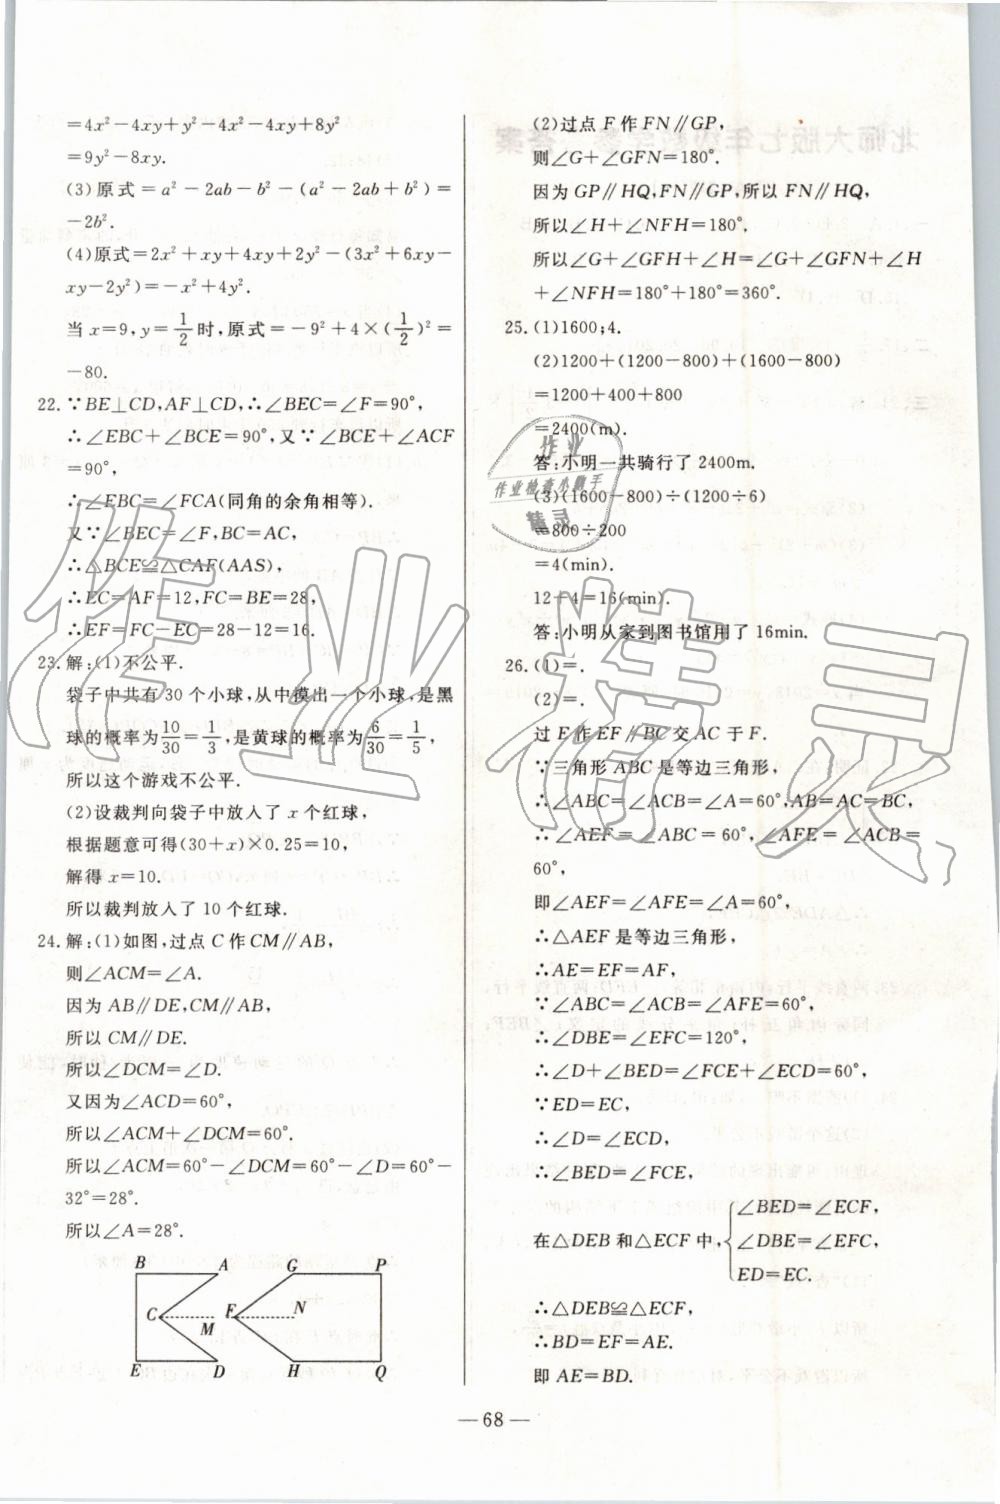 =4x²-4xy+y²-4x²-4xy+8y²
=9y²-8xy.
(3)原式=a²-2ab-b²-(a²-2ab+b²)=
-2b².
(4)原式=2x²+xy+4xy+2y²-(3x²+6xy-
xy-2y²)=-x²+4y².
当x=9,y=1/2时,原式=-9²+4×(1/2)²=
-80.
22.∵BE⊥CD,AF⊥CD,∴∠BEC=∠F=90°,
∴∠EBC+∠BCE=90°,又∵∠BCE+∠ACF
=90°,
∴∠EBC=∠FCA(同角的余角相等).
又∵∠BEC=∠F,BC=AC,
∴△BCE≌△CAF(AAS),
∴EC=AF=12,FC=BE=28,
∴EF=FC-EC=28-12=16.
23.解:(1)不公平.
袋子中共有30个小球,从中摸出一个小球,是黑
球的概率为10/30=1/3,是黄球的概率为6/30=1/5,
所以这个游戏不公平.
(2)设裁判向袋子中放入了x个红球,
根据题意可得(30+x)×0.25=10,
解得x=10.
所以裁判放入了10个红球.
24.解:(1)如图,过点C作CM∥AB,
则∠ACM=∠A.
因为AB∥DE,CM∥AB,
所以CM∥DE.
所以∠DCM=∠D.
又因为∠ACD=60°,
所以∠ACM+∠DCM=60°.
所以∠ACM=60°-∠DCM=60°-∠D=60°-
32°=28°.
所以∠A=28°.
B A G P
C M F N
E D H Q
(2)过点F作FN∥GP,
则∠G+∠GFN=180°.
因为GP∥HQ,FN∥GP,所以FN∥HQ,
所以∠H+∠NFH=180°.
所以∠G+∠GFH+∠H=∠G+∠GFN+∠H
+∠NFH=180°+180°=360°.
25.(1)1600;4.
(2)1200+(1200-800)+(1600-800)
=1200+400+800
=2400(m).
答:小明一共骑行了2400m.
(3)(1600-800)÷(1200÷6)
=800÷200
=4(min).
12+4=16(min).
答:小明从家到图书馆用了16min.
26.(1)=.
(2)=.
过E作EF∥BC交AC于F.
∵三角形ABC是等边三角形,
∴∠ABC=∠ACB=∠A=60°,AB=AC=BC,
∴∠AEF=∠ABC=60°,∠AFE=∠ACB=
60°,
即∠AEF=∠AFE=∠A=60°,
∴△AEF是等边三角形,
∴AE=EF=AF,
∵∠ABC=∠ACB=∠AFE=60°,
∴∠DBE=∠EFC=120°,
∴∠D+∠BED=∠FCE+∠ECD=60°,
∵ED=EC,
∴∠D=∠ECD,
∴∠BED=∠FCE,
在△DEB和△ECF中,
∠BED=∠ECF,
∠DBE=∠EFC,
ED=EC.
∴△DEB≌△ECF,
∴BD=EF=AE.
即AE=BD.
作业
作业检查小助手
作业精灵
—68—